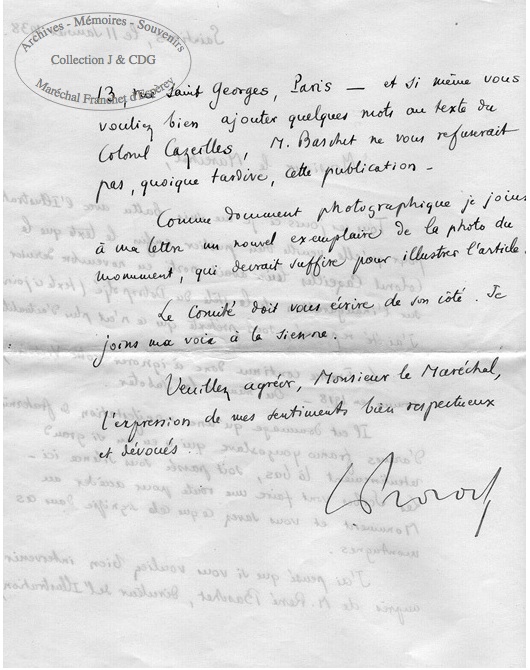 Archives - Mémoires - Souvenirs
Collection J & CDG
Maréchal Franchet d'Espèrey
13, rue Saint Georges, Paris — et si même vous
vouliez bien ajouter quelques mots au texte du
Colonel Cazeilles, M. Baschet ne vous refuserait
pas, quoique tardive, cette publication -
Comme document photographique je joins
à ma lettre un nouvel exemplaire de la photo du
monument, qui devrait suffire pour illustrer l'article.
Le Comité doit vous écrire de son côté. Je
joins ma voix à la sienne.
Veuillez agréer, Monsieur le Maréchal,
l'expression de mes sentiments bien respectueux
et dévoués.